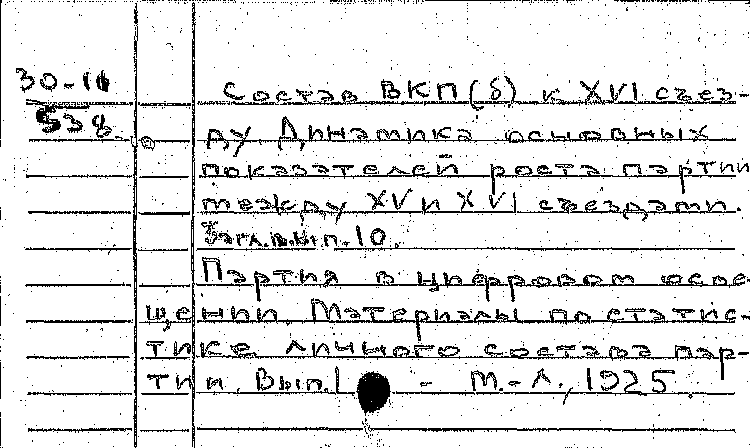 30-11
538
Состав ВКП(б) к XVI съез-
ду. Динамика основных
показателей роста партии
между XV и XVI съездами.
Загл.вып.10.
Партия в цифровом осве-
щении. Материалы по статис-
тике личного состава пар-
тии. Вып.1 - М.-Л., 1925.